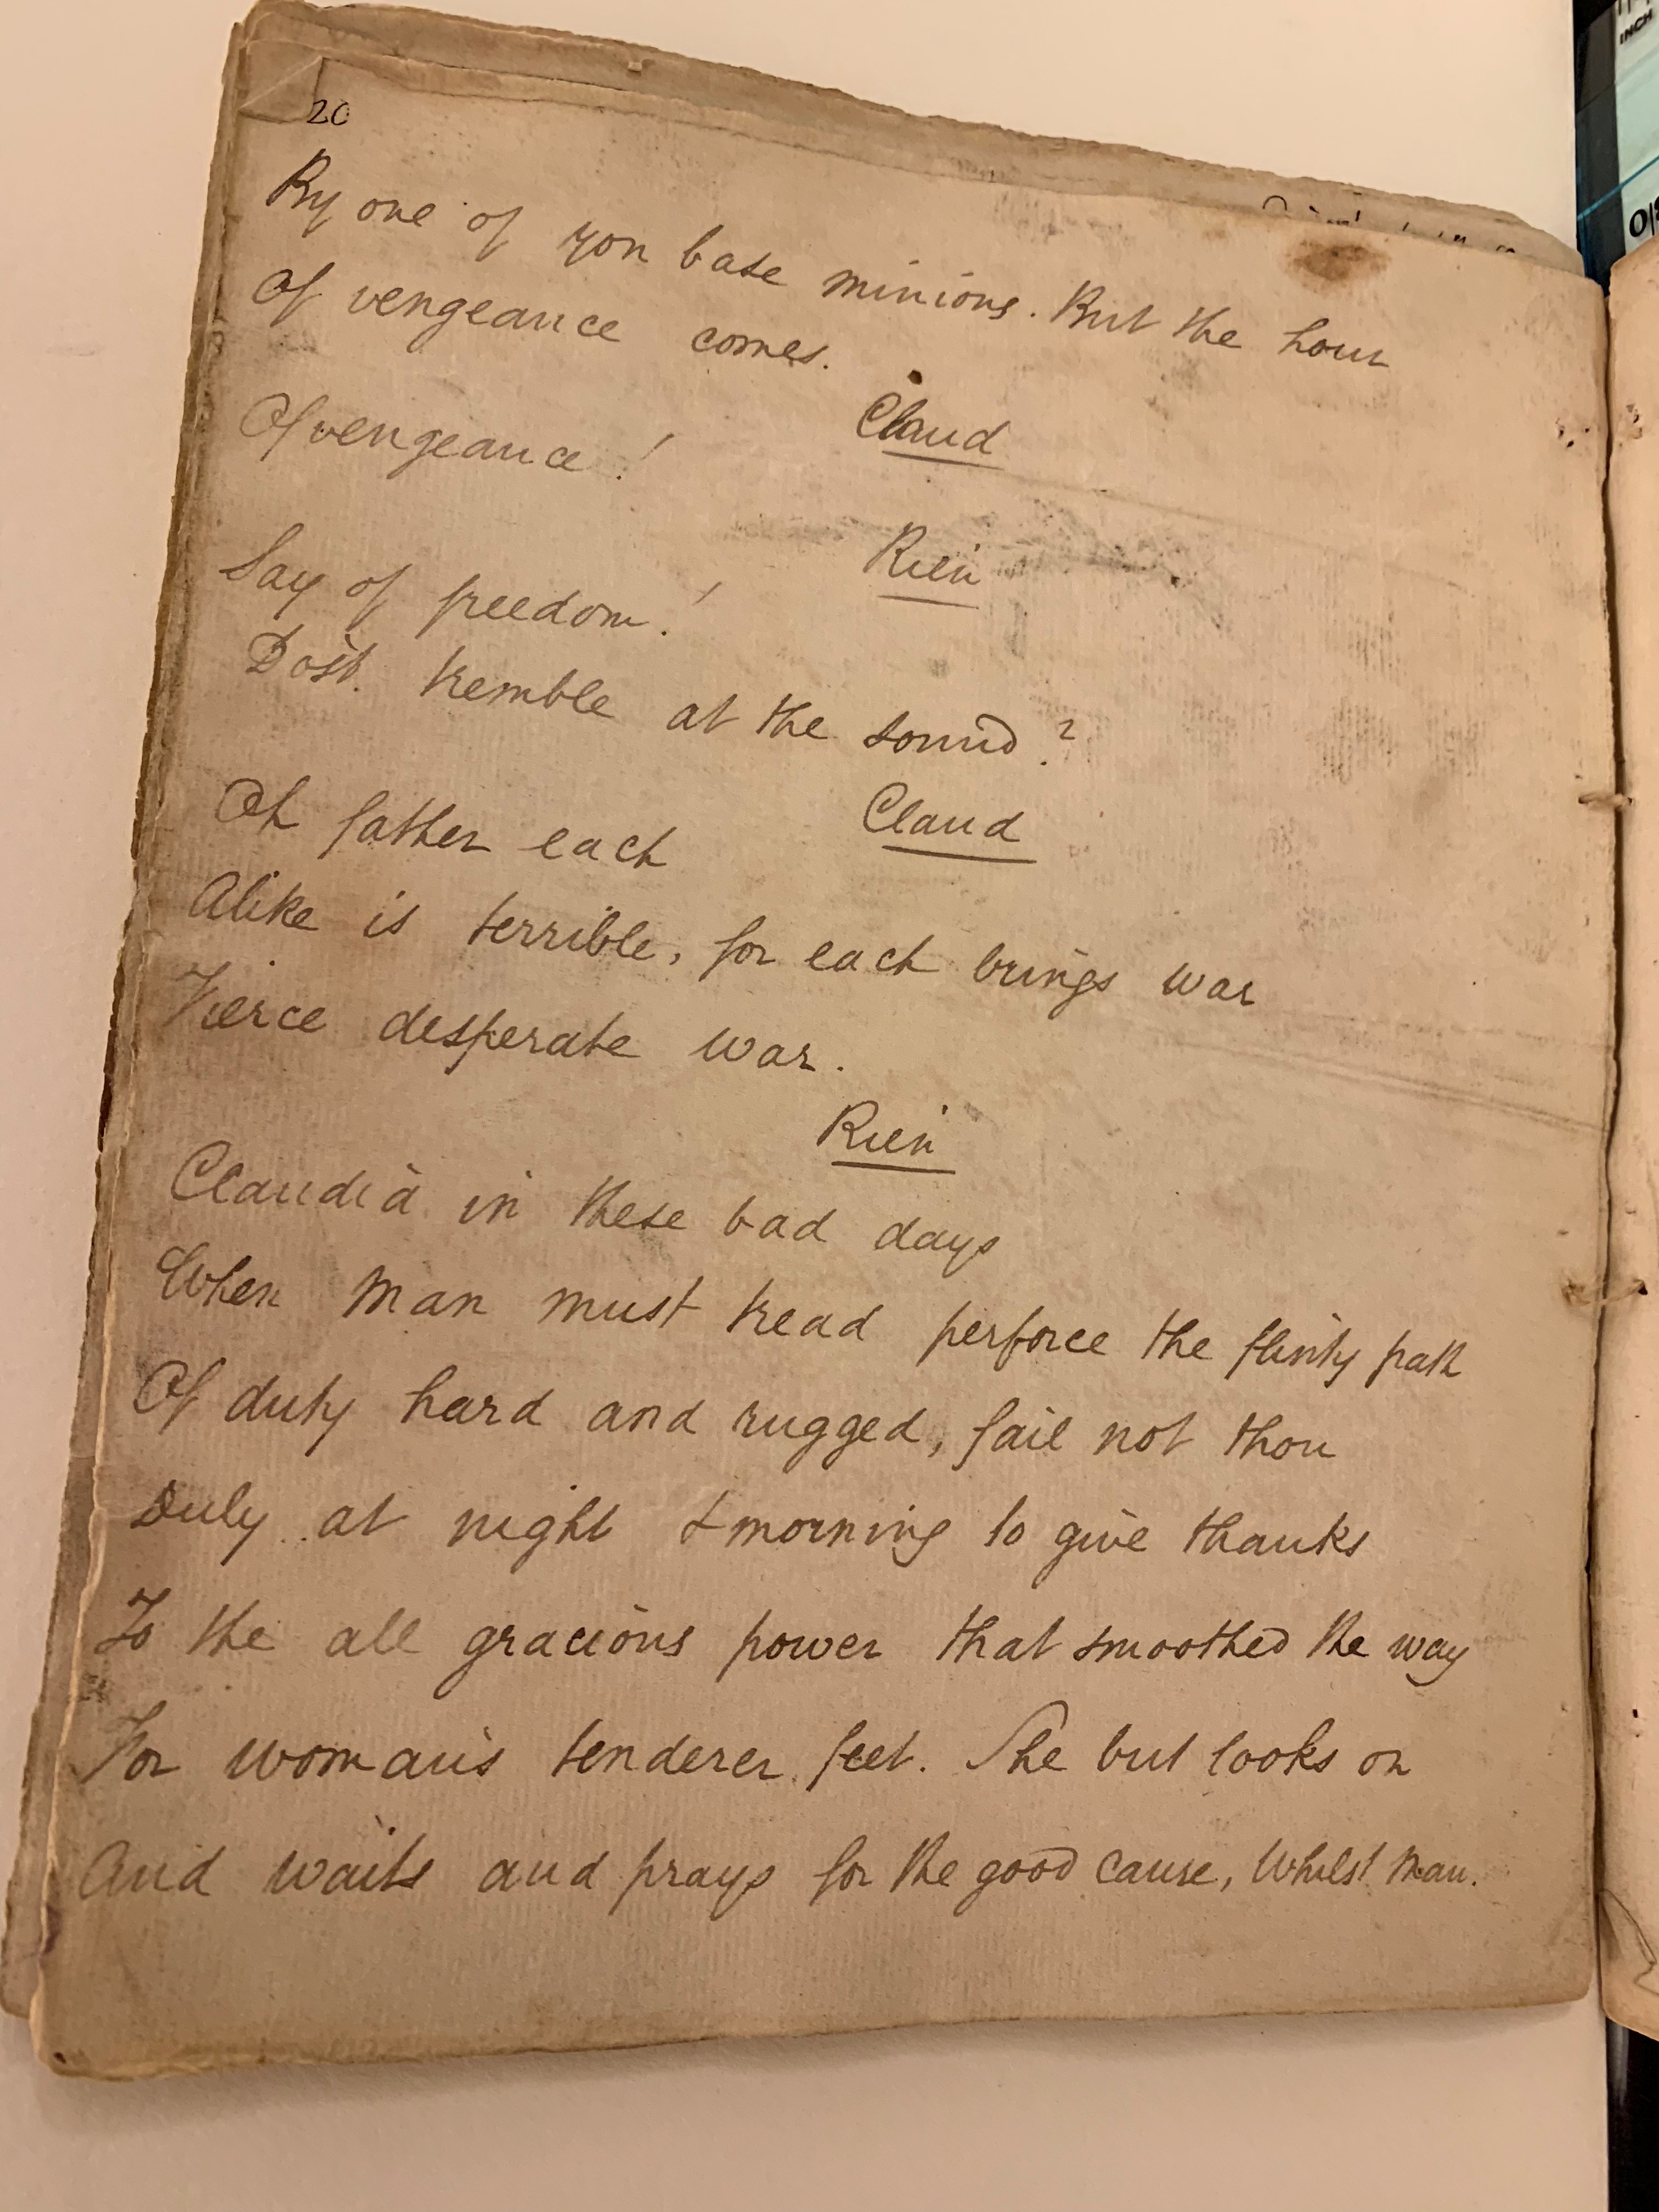 20
By one of yon base minions. But the hour
Of vengeance comes.
Claud
Of vengeance!
Rien
Say of freedom!
Dost tremble at the sound?
Claud
Oh father each
Alike is terrible, for each brings war
Fierce desperate war.
Rien
Claudia in these bad days
When Man must tread perforce the flinty path
Of duty hard and rugged, fail not thou
Duly at night & morning to give thanks
To the all gracious power that smoothed the way
For woman's tenderer feet. She but looks on
And waits and prays for the good cause, Whilst Man.
INCH